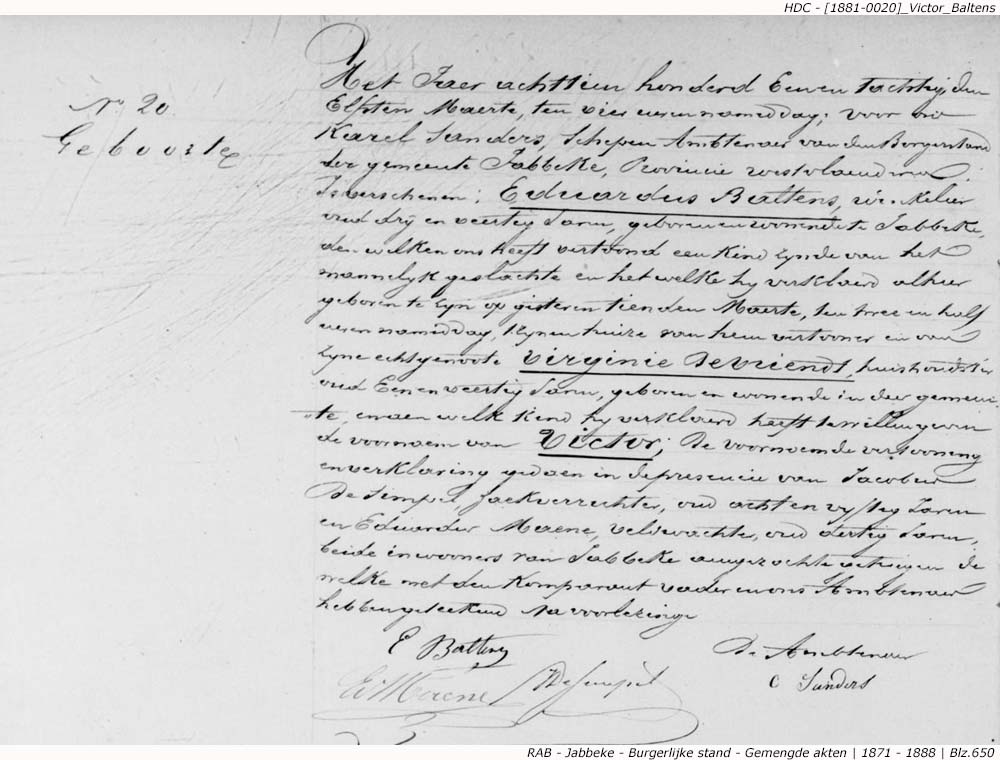 HDC - [1881-0020]_Victor_Baltens
N° 20
Geboorte
Het Jaer achttien honderd Eenen tachtig, den
Elfsten Maerte, ten vier uren namiddag; voor ons
Karel Sanders, Schepen Ambtenaer van den Borgerstand
der gemeente Jabbeke, Provincie westvlaenderen
Is verschenen: Eduardus Baltens, winkelier
oud dry en veertig Jaren, geboren en wonende te Jabbeke,
den welken ons heeft vertoond een kind zynde van het
mannelyk geslachte en het welke hy verklaerd alhier
geboren te zyn op gisteren tienden Maerte, ten twee en half
uren namiddag, tzynen huize van hem vertooner en van
zyne echtgenoote Virginie DeVriendt, huishoudster
oud Eenen veertig Jaren, geboren en wonende in der gemeen-
-te, en aen welk kind hy verklaerd heeft te willen geven
de voornaem van Victor; De voornoemde vertooning
en verklaring gedaen in de presencie van Jacobus
De Simpel, zaekverrechter, oud acht en vyftig Jaren
en Eduardus Maene, veldwachter, oud dertig Jaren,
beide inwooners van Jabbeke aengezochte getuigen de
welke met den komparant vader en ons Ambtenaer
hebben geteekend na voorlezinge
E Baltens
De Ambtenaer
Ed Maene
J DeSimpel
C Sanders
RAB - Jabbeke - Burgerlijke stand - Gemengde akten | 1871 - 1888 | Blz.650